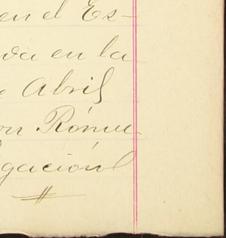 en el Es-
va en la
e Abril
on Rómu
gación